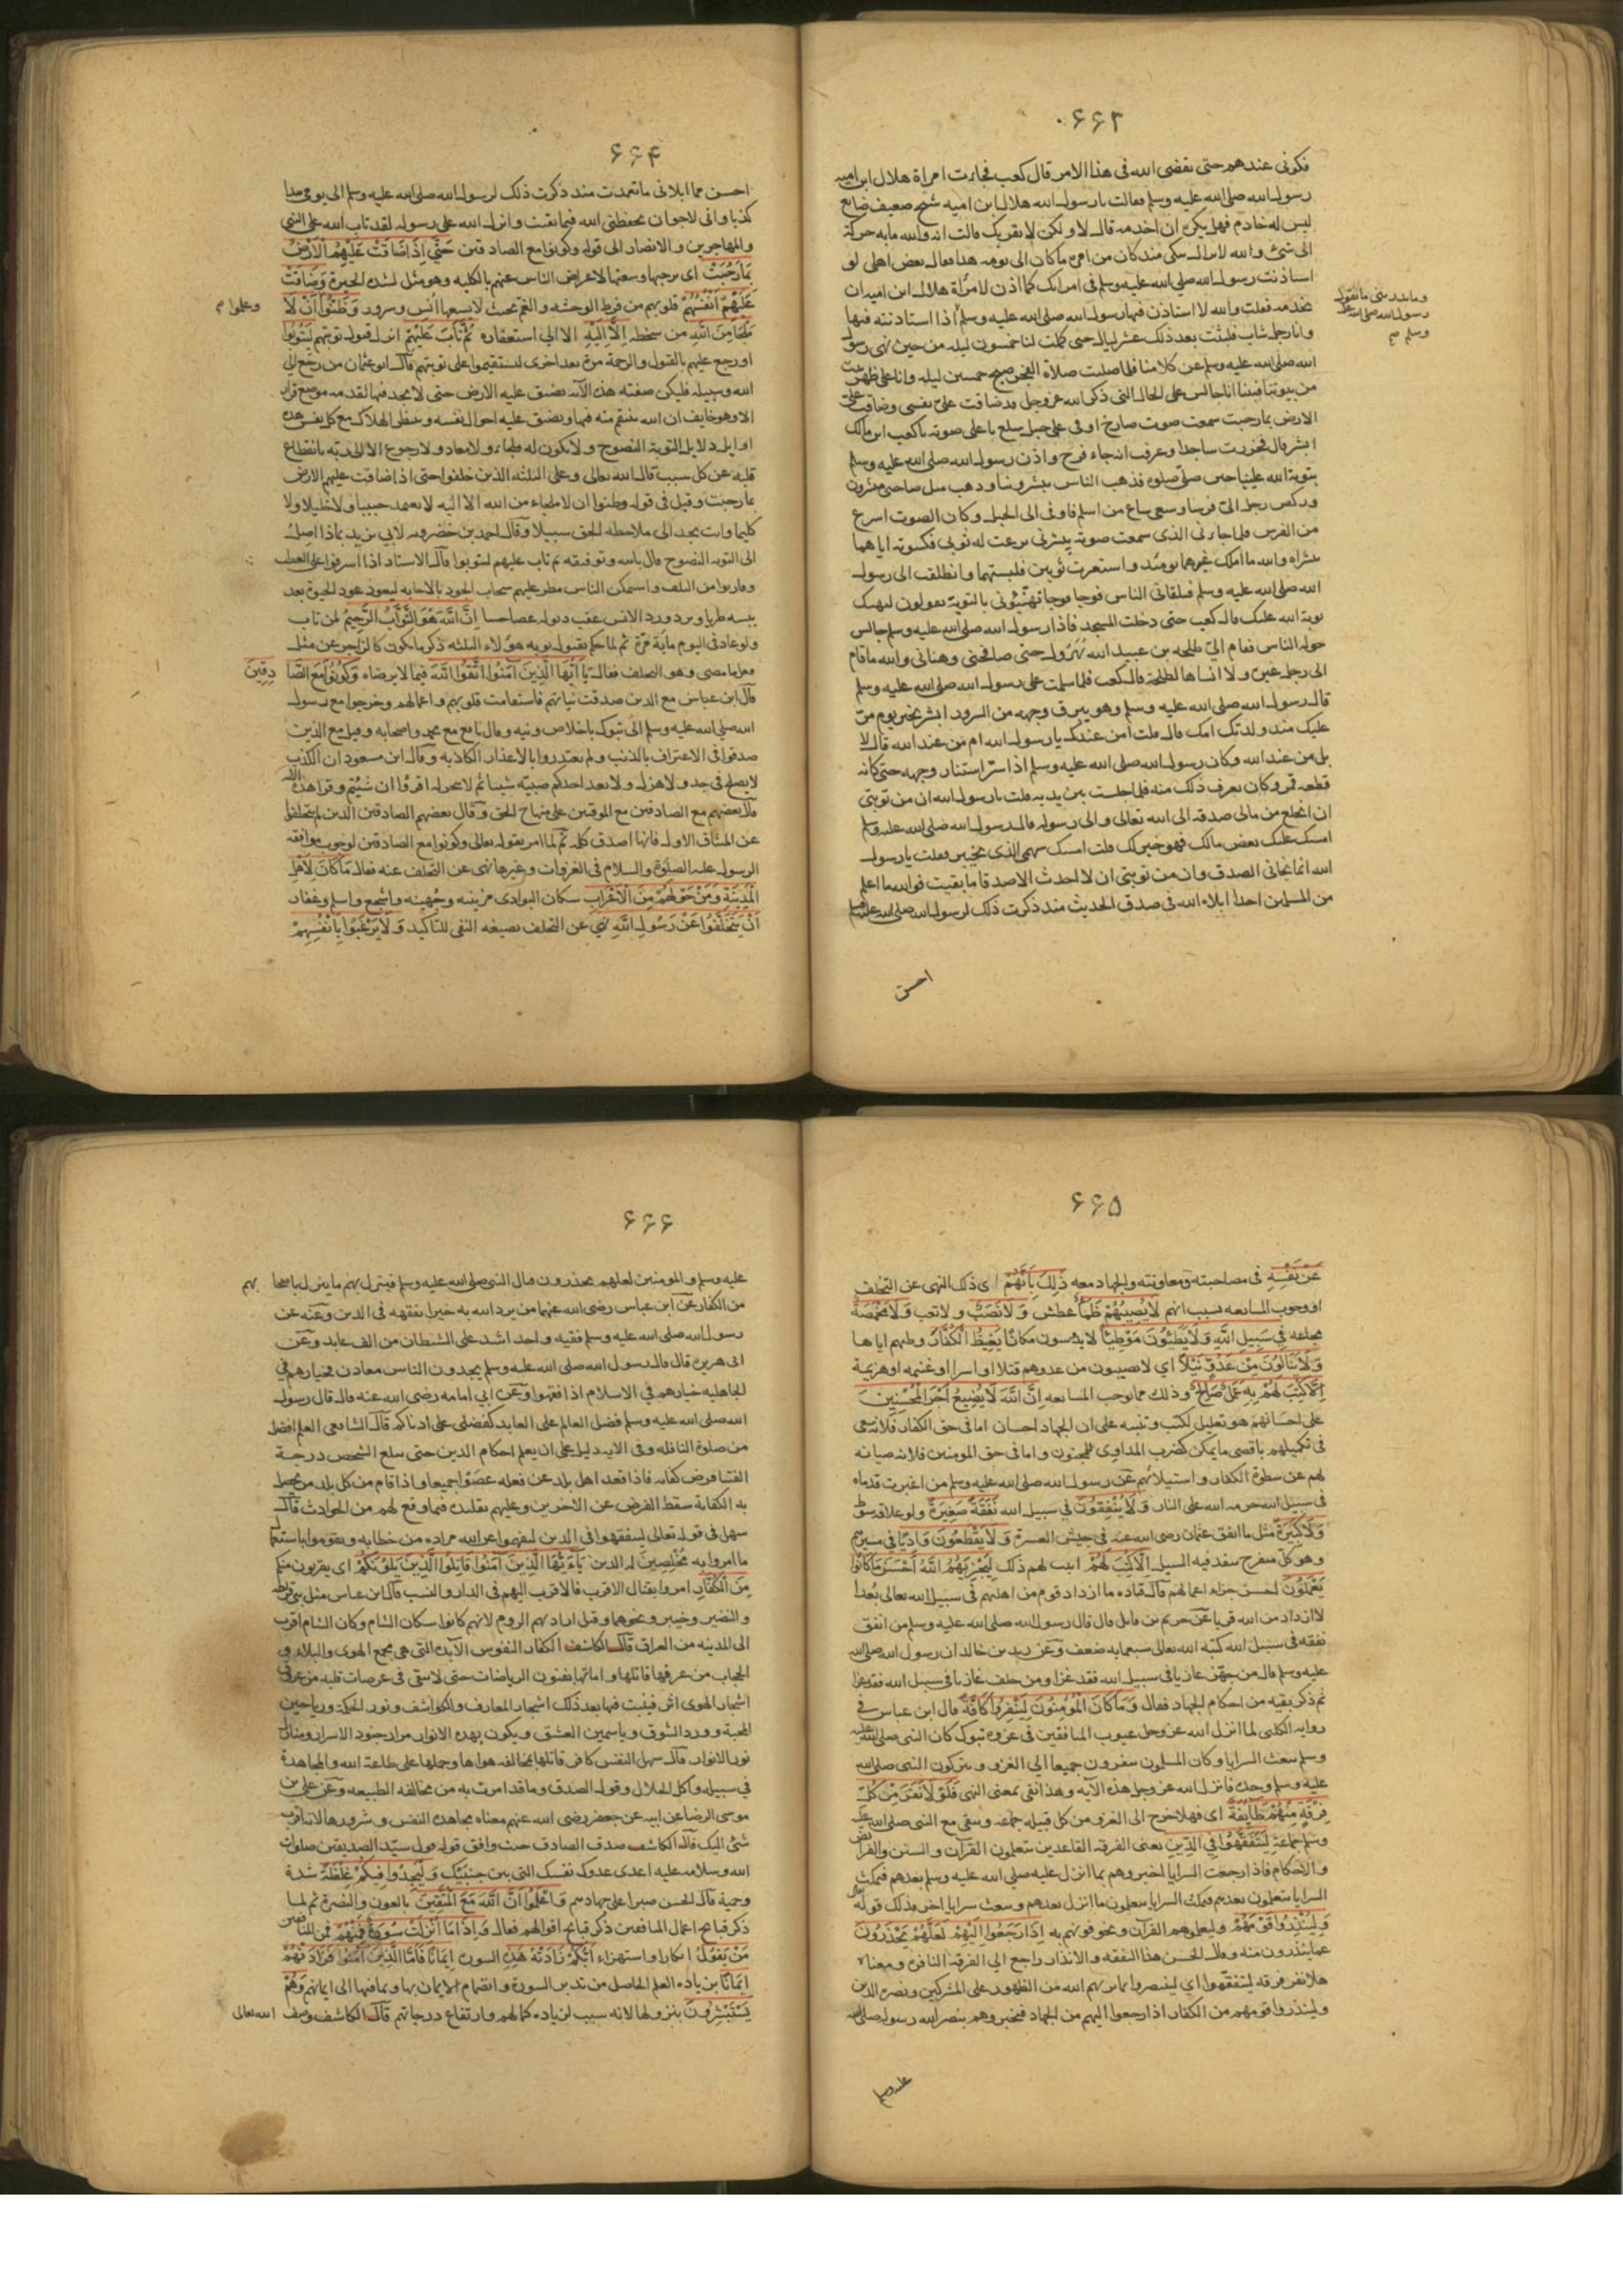 ۶۶۳
فكونى عندهم حتى يقضى الله فى هذا الامر قال كعب فجاءت امراة هلال ابن اميه
رسول الله صلى الله عليه وسلم فقالت يا رسول الله هلال ابن اميه شيخ ضعيف ضايع
ليس له خادم فهل يكره ان اخدمه قال لا ولكن لا يقربك قالت انه والله ما به حركة
الى شئ والله لازال يبكى منذ كان من امره ما كان الى يومه هذا فقال بعض اهلى لو
استاذنت رسول الله صلى الله عليه وسلم فى امراتك كما اذن لامرأة هلال ابن امية ان
تخدمه فقلت والله لا استاذن فيها رسول الله صلى الله عليه وسلم اذا استاذنته فيها
وما يدرينى ما يقول
رسول الله صلى الله عليه
وسلم صح
وانا رجل شاب فلبثت بعد ذلك عشر ليال حتى كملت لنا خمسون ليله من حين نهى رسول
الله صلى الله عليه وسلم عن كلامنا فلما صليت صلاة الفجر صبح خمسين ليله وانا على ظهر بيت
من بيوتنا فبينا انا جالس على الحال التى ذكر الله عز وجل قد ضاقت علىّ نفسى وضاقت علىّ
الارض بما رحبت سمعت صوت صارخ اوفى على جبل سلع باعلى صوته يا كعب ابن مالك
ابشر قال فخررت ساجدا وعرفت انه جاء فرح واذن رسول الله صلى الله عليه وسلم
بتوبة الله علينا حين صلّى صلوة فذهب الناس يبشروننا وذهب قبل صاحبى مبشرون
وركض رجل الىّ فرسا وسعى ساع من اسلم فاوفى الى الجبل وكان الصوت اسرع
من الفرس فلما جاءنى الذى سمعت صوته يبشرنى نزعت له ثوبى فكسوته اياهما
ببشراه والله ما املك غيرهما يومئذ واستعرت ثوبين فلبستهما وانطلقت الى رسول
الله صلى الله عليه وسلم فيلقانى الناس فوجا فوجا تهنّئونى بالتوبة يقولون ليهنك
توبة الله عليك قال كعب حتى دخلت المسجد فاذا رسول الله صلى الله عليه وسلم جالس
حوله الناس فقام الىّ طلحه بن عبيد الله يُهَرْول حتى صافحنى وهنانى والله ما قام
الى رجل غيره ولا انساها لطلحة قال كعب فلما سلمت على رسول الله صلى الله عليه وسلم
قال رسول الله صلى الله عليه وسلم وهو يبرق وجهه من السرور ابشر بخير يوم مرّ
عليك منذ ولدتك امك قال قلت امن عندك يا رسول الله ام من عند الله قال لا
بل من عند الله وكان رسول الله صلى الله عليه وسلم اذا سرّ استنار وجهه حتى كانه
قطعه قمر وكان نعرف ذلك منه فلما جلست بين يديه قلت يا رسول الله ان من توبتى
ان انخلع من مالى صدقه الى الله تعالى والى رسوله قال رسول الله صلى الله عليه وسلم
امسك عليك بعض مالك فهو خير لك قلت امسك سهمى الذى بخيبر فقلت يا رسول
الله انما نجانى الصدق وان من توبتى ان لا احدث الا صدقا ما بقيت فوالله ما اعلم
من المسلمين احدا ابلاه الله فى صدق الحديث منذ ذكرت ذلك لرسول الله صلى الله عليه وسلم
احسن
۶۶۴
احسن مما ابلانى ما تعمدت منذ ذكرت ذلك لرسول الله صلى الله عليه وسلم الى يومى هذا
كذبا وانى لارجو ان يحفظنى الله فيما بقيت وانزل الله على رسوله لقد تاب الله على النبى
والمهاجرين والانصار الى قوله وكونوا مع الصادقين حَتَّى اِذَا ضَاقَتْ عَلَيْهِمُ الْاَرْضُ
بِمَا رَحُبَتْ اى برحبها وسعتها لاعراض الناس عنهم بالكليه وهو مثل لشدة الحيرة وَضَاقَتْ
عَلَيْهِمْ اَنْفُسُهُمْ قلوبهم من فرط الوحشه والغم بحيث لا يسعها انس وسرور وَظَنُّوا اَنْ لَا
وعلموا م
مَلْجَأَ مِنَ اللَّهِ من سخطه اِلَّا اِلَيْهِ الا الى استغفاره ثُمَّ تَابَ عَلَيْهِمْ انزل قبول توبتهم لِيَتُوبُوا
او رجع عليهم بالقبول والرحمة مرة بعد اخرى ليستقيموا على توبتهم قال ابو عثمان من رجع الى
الله وسبيله فليكن صفته هذه الآية تضيق عليه الارض حتى لا يجد فيها لقدمه موضع قرار
الا وهو خايف ان الله ينتقم منه فيها وتضيق عليه احوال نفسه وينتظر الهلاك مع كل نفس هذه
اوايل دلايل التوبة النصوح ولا يكون له ملجاء ولا معاد ولا رجوع الا الى ربه بانقطاع
قلبه عن كل سبب قال الله تعالى وعلى الثلثه الذين خلفوا حتى اذا ضاقت عليهم الارض
بما رحبت وقيل فى قوله وظنوا ان لا ملجاء من الله الا اليه لا يعتمد حبيبا ولا خليلا ولا
كليما وانت تجد الى ملاحظه الحق سبيلا وقال احمد بن خضرويه لابى يزيد بماذا اصل
الى التوبه النصوح قال بالله وتوفيقه ثم تاب عليهم ليتوبوا قال الاستاد اذا اشرفوا على العطب
وقاربوا من التلف واستمكن الناس مطر عليهم سحاب الجود بالاجابه ليعود عود الحيوة بعد
يبسه طريا ويرد ورد الانس عقب ذبوله غصا جنيا اِنَّ اللَّهَ هُوَ التَّوَّابُ الرَّحِيمُ لمن تاب
ولو عاد فى اليوم ماية مرّة ثم لما حكم بقبول توبه هؤلاء الثلثه ذكر ما يكون كالزاجر عن مثل
فعل ما مضى وهو التخلف فقال يَا اَيُّهَا الَّذِينَ آمَنُوا اتَّقُوا اللَّهَ فيما لا يرضاه وَكُونُوا مَعَ الصَّادِقِينَ
قال ابن عباس مع الذين صدقت نياتهم فاستقامت قلوبهم واعمالهم وخرجوا مع رسول
الله صلى الله عليه وسلم الى تبوك باخلاص ونيه وقال نافع مع محمد واصحابه وقيل مع الذين
صدقوا فى الاعتراف بالذنب ولم يعتذروا بالاعذار الكاذبه وقال ابن مسعود ان الكذب
لا يصلح فى جد ولا هزل ولا يعد احدكم صبيّه شيئا ثم لا ينجز له اقرؤا ان شئتم وقرا هذه الآية
قال بعضهم مع الصادقين مع الموقنين على منهاج الحق وقال بعضهم الصادقين الذين لم يتخلفوا
عن الميثاق الاول فانها اصدق كلمه ثم لما امر بقوله تعالى وكونوا مع الصادقين لوجوب موافقه
الرسول عليه الصلوة والسلام فى الغزوات وغيرها نهى عن التخلف عنه فقال مَا كَانَ لِاَهْلِ
الْمَدِينَةِ وَمَنْ حَوْلَهُمْ مِنَ الْاَعْرَابِ سكان البوادى مزينه وجهينه واشجع واسلم وغفار
اَنْ يَتَخَلَّفُوا عَنْ رَسُولِ اللَّهِ نهى عن التخلف بصيغه النفى للتاكيد وَلَا يَرْغَبُوا بِاَنْفُسِهِمْ
۶۶۵
عَنْ نَفْسِهِ فى مصاحبته ومعاونته والجهاد معه ذَلِكَ بِاَنَّهُمْ اى ذلك النهى عن التخلف
او وجوب المتابعه بسبب انهم لَا يُصِيبُهُمْ ظَمَأٌ عطش وَلَا نَصَبٌ ولا تعب وَلَا مَخْمَصَةٌ
مجاعه فِى سَبِيلِ اللَّهِ وَلَا يَطَئُونَ مَوْطِئًا لا يدوسون مكانا يَغِيظُ الْكُفَّارَ وطيهم اياها
وَلَا يَنَالُونَ مِنْ عَدُوٍّ نَيْلًا اي لا يصيبون من عدوهم قتلا او اسرا او غنيمه او هزيمة
اِلَّا كُتِبَ لَهُمْ بِهِ عَمَلٌ صَالِحٌ وذلك مما يوجب المتابعه اِنَّ اللَّهَ لَا يُضِيعُ اَجْرَ الْمُحْسِنِينَ
على احسانهم هو تعليل لكتب وتنبيه على ان الجهاد احسان اما فى حق الكفار فلانه سعى
فى تكميلهم باقصى ما يمكن كضرب المداوى للمجنون واما فى حق المومنين فلانه صيانه
لهم عن سطوة الكفار واستيلائهم عن رسول الله صلى الله عليه وسلم من اغبرت قدماه
فى سبيل الله حرمه الله على النار وَلَا يُنْفِقُونَ فى سبيل الله نَفَقَةً صَغِيرَةً ولو علاقه سوط
وَلَا كَبِيرَةً مثل ما انفق عثمان رضى الله عنه فى جيش العسرة وَلَا يَقْطَعُونَ وَادِيًا فى مسيرهم
وهو كل منفرج ينفد فيه السيل اِلَّا كُتِبَ لَهُمْ اثبت لهم ذلك لِيَجْزِيَهُمُ اللَّهُ اَحْسَنَ مَا كَانُوا
يَعْمَلُونَ احسن جزاء اعمالهم قال قتاده ما ازداد قوم من اهليهم فى سبيل الله تعالى بُعْدا
الا ازداد من الله قربا عن خريم بن فاتك قال قال رسول الله صلى الله عليه وسلم من انفق
نفقه فى سبيل الله كتبه الله تعالى سبعمايه ضعف وعن زيد بن خالد ان رسول الله صلى الله
عليه وسلم قال من جهّز غازيا فى سبيل الله فقد غزا ومن خلف غازيا فى سبيل الله فقد غزا
ثم ذكر بقيه من احكام الجهاد فقال وَمَا كَانَ الْمُؤْمِنُونَ لِيَنْفِرُوا كَافَّةً قال ابن عباس فى
رواية الكلبى لما انزل الله عز وجل عيوب المنافقين فى غزوه تبوك كان النبى صلى الله عليه
وسلم يبعث السرايا وكان المسلمون ينفرون جميعا الى الغزو ويتركون النبى صلى الله
عليه وسلم وحده فانزل الله عز وجل هذه الآيه وهذا نفى بمعنى النهى فَلَوْلَا نَفَرَ مِنْ كُلِّ
فِرْقَةٍ مِنْهُمْ طَائِفَةٌ اى فهلا خرج الى الغزو من كل قبيله جماعه ويبقى مع النبى صلى الله عليه
وسلم جماعة لِيَتَفَقَّهُوا فِى الدِّينِ يعنى الفرقه القاعدين يتعلمون القرآن والسنن والفرائض
والاحكام فاذا رجعت السرايا اخبروهم بما انزل عليه صلى الله عليه وسلم بعدهم فيمكث
السرايا يتعلمون ما انزل بعدهم ويبعث سرايا اخر فذلك قوله تعالى
وَلِيُنْذِرُوا قَوْمَهُمْ وليعلموهم القرآن ويخوفونهم به اِذَا رَجَعُوا اِلَيْهِمْ لَعَلَّهُمْ يَحْذَرُونَ
عما ينذرون منه وقال الحسن هذا التفقه والانذار راجع الى الفرقه النافره ومعناه
هلا نفر فرقه ليتفقهوا اى ليبصروا بما يريهم الله من الظهور على المشركين ونصره الدين
ولينذروا قومهم من الكفار اذا رجعوا اليهم من الجهاد فيخبروهم بنصر الله رسوله صلى الله
عليه وسلم
۶۶۶
عليه وسلم والمومنين لعلهم يحذرون قتال النبى صلى الله عليه وسلم فينزل بهم ما ينزل باصحابهم
من الكفار عن ابن عباس رضى الله عنهما من يرد الله به خيرا يفقهه فى الدين وعنه عن
رسول الله صلى الله عليه وسلم فقيه واحد اشد على الشيطان من الف عابد وعن
ابى هريره قال قال رسول الله صلى الله عليه وسلم يجدون الناس معادن فخيارهم فى
الجاهليه خيارهم فى الاسلام اذا فقهوا وعن ابى امامه رضى الله عنه قال قال رسول
الله صلى الله عليه وسلم فضل العالم على العابد كفضلى على ادناكم قال الشافعى العلم افضل
من صلوة النافله وفى الايه دليل على ان تعلم احكام الدين حتى يبلغ الشخص درجة
الفتيا فرض كفايه فاذا قعد اهل بلد عن فعله عصوا جميعا واذا قام من كل بلد من يحصل
به الكفاية سقط الفرض عن الاخرين وعليهم تقليده فيما وقع لهم من الحوادث قال
سهل فى قوله تعالى ليتفقهوا فى الدين ليفهموا عن الله مراده من خطابه ويقوموا باستعمال
ما امروا به مُخْلِصِينَ له الدين يَا اَيُّهَا الَّذِينَ آمَنُوا قَاتِلُوا الَّذِينَ يَلُونَكُمْ اى يقربون منكم
مِنَ الْكُفَّارِ امروا بقتال الاقرب فالاقرب اليهم فى الدار والنسب قال ابن عباس مثل بنى قريظه
والنضير وخيبر ونحوها وقيل اراد بهم الروم لانهم كانوا سكان الشام وكان الشام اقرب
الى المدينه من العراق قال الكاشف الكفار النفوس الآبده التى هى مجمع الهوى والبلاد فى
الحجاب من عرفها قاتلها واماتها بفنون الرياضات حتى لا يبقى فى عرصات قلبه من عروق
اشجار الهوى اثر فينبت فيها بعد ذلك اشجار المعارف والكواشف ونور الحكمة ورياحين
المحبة وورد الشوق وياسمين العشق ويكون بهذه الانوار مزار جنود الاسرار ومنازل
نور الانوار قال سهل النفس كافر قاتلها بمخالفه هواها وحملها على طاعة الله والمجاهدة
فى سبيله واكل الحلال وقول الصدق وما قد امرت به من مخالفه الطبيعه وعن على بن
موسى الرضا عن ابيه عن جعفر رضى الله عنهم معناه مجاهدة النفس وشرورها لانه اقرب
شئ اليك قال الكاشف صدق الصادق حيث وافق قوله قول سيّد الصديقين صلوات
الله وسلامه عليه اعدى عدوك نفسك التى بين جنبيك وَلْيَجِدُوا فِيكُمْ غِلْظَةً شدة
وحمية قال الحسن صبرا على جهادهم وَاعْلَمُوا اَنَّ اللَّهَ مَعَ الْمُتَّقِينَ بالعون والنصرة ثم لما
ذكر قبائح اعمال المنافقين ذكر قبائح اقوالهم فقال وَاِذَا مَا اُنْزِلَتْ سُورَةٌ فَمِنْهُمْ فمن المنافقين
مَنْ يَقُولُ انكارا واستهزاء اَيُّكُمْ زَادَتْهُ هَذِهِ السورة اِيمَانًا فَاَمَّا الَّذِينَ آمَنُوا فَزَادَتْهُمْ
اِيمَانًا بزياده العلم الحاصل من تدبر السورة وانضمام الايمان بها وبما فيها الى ايمانهم وَهُمْ
يَسْتَبْشِرُونَ بنزولها لانه سبب لزياده كمالهم وارتفاع درجاتهم قال الكاشف وصف الله تعالى